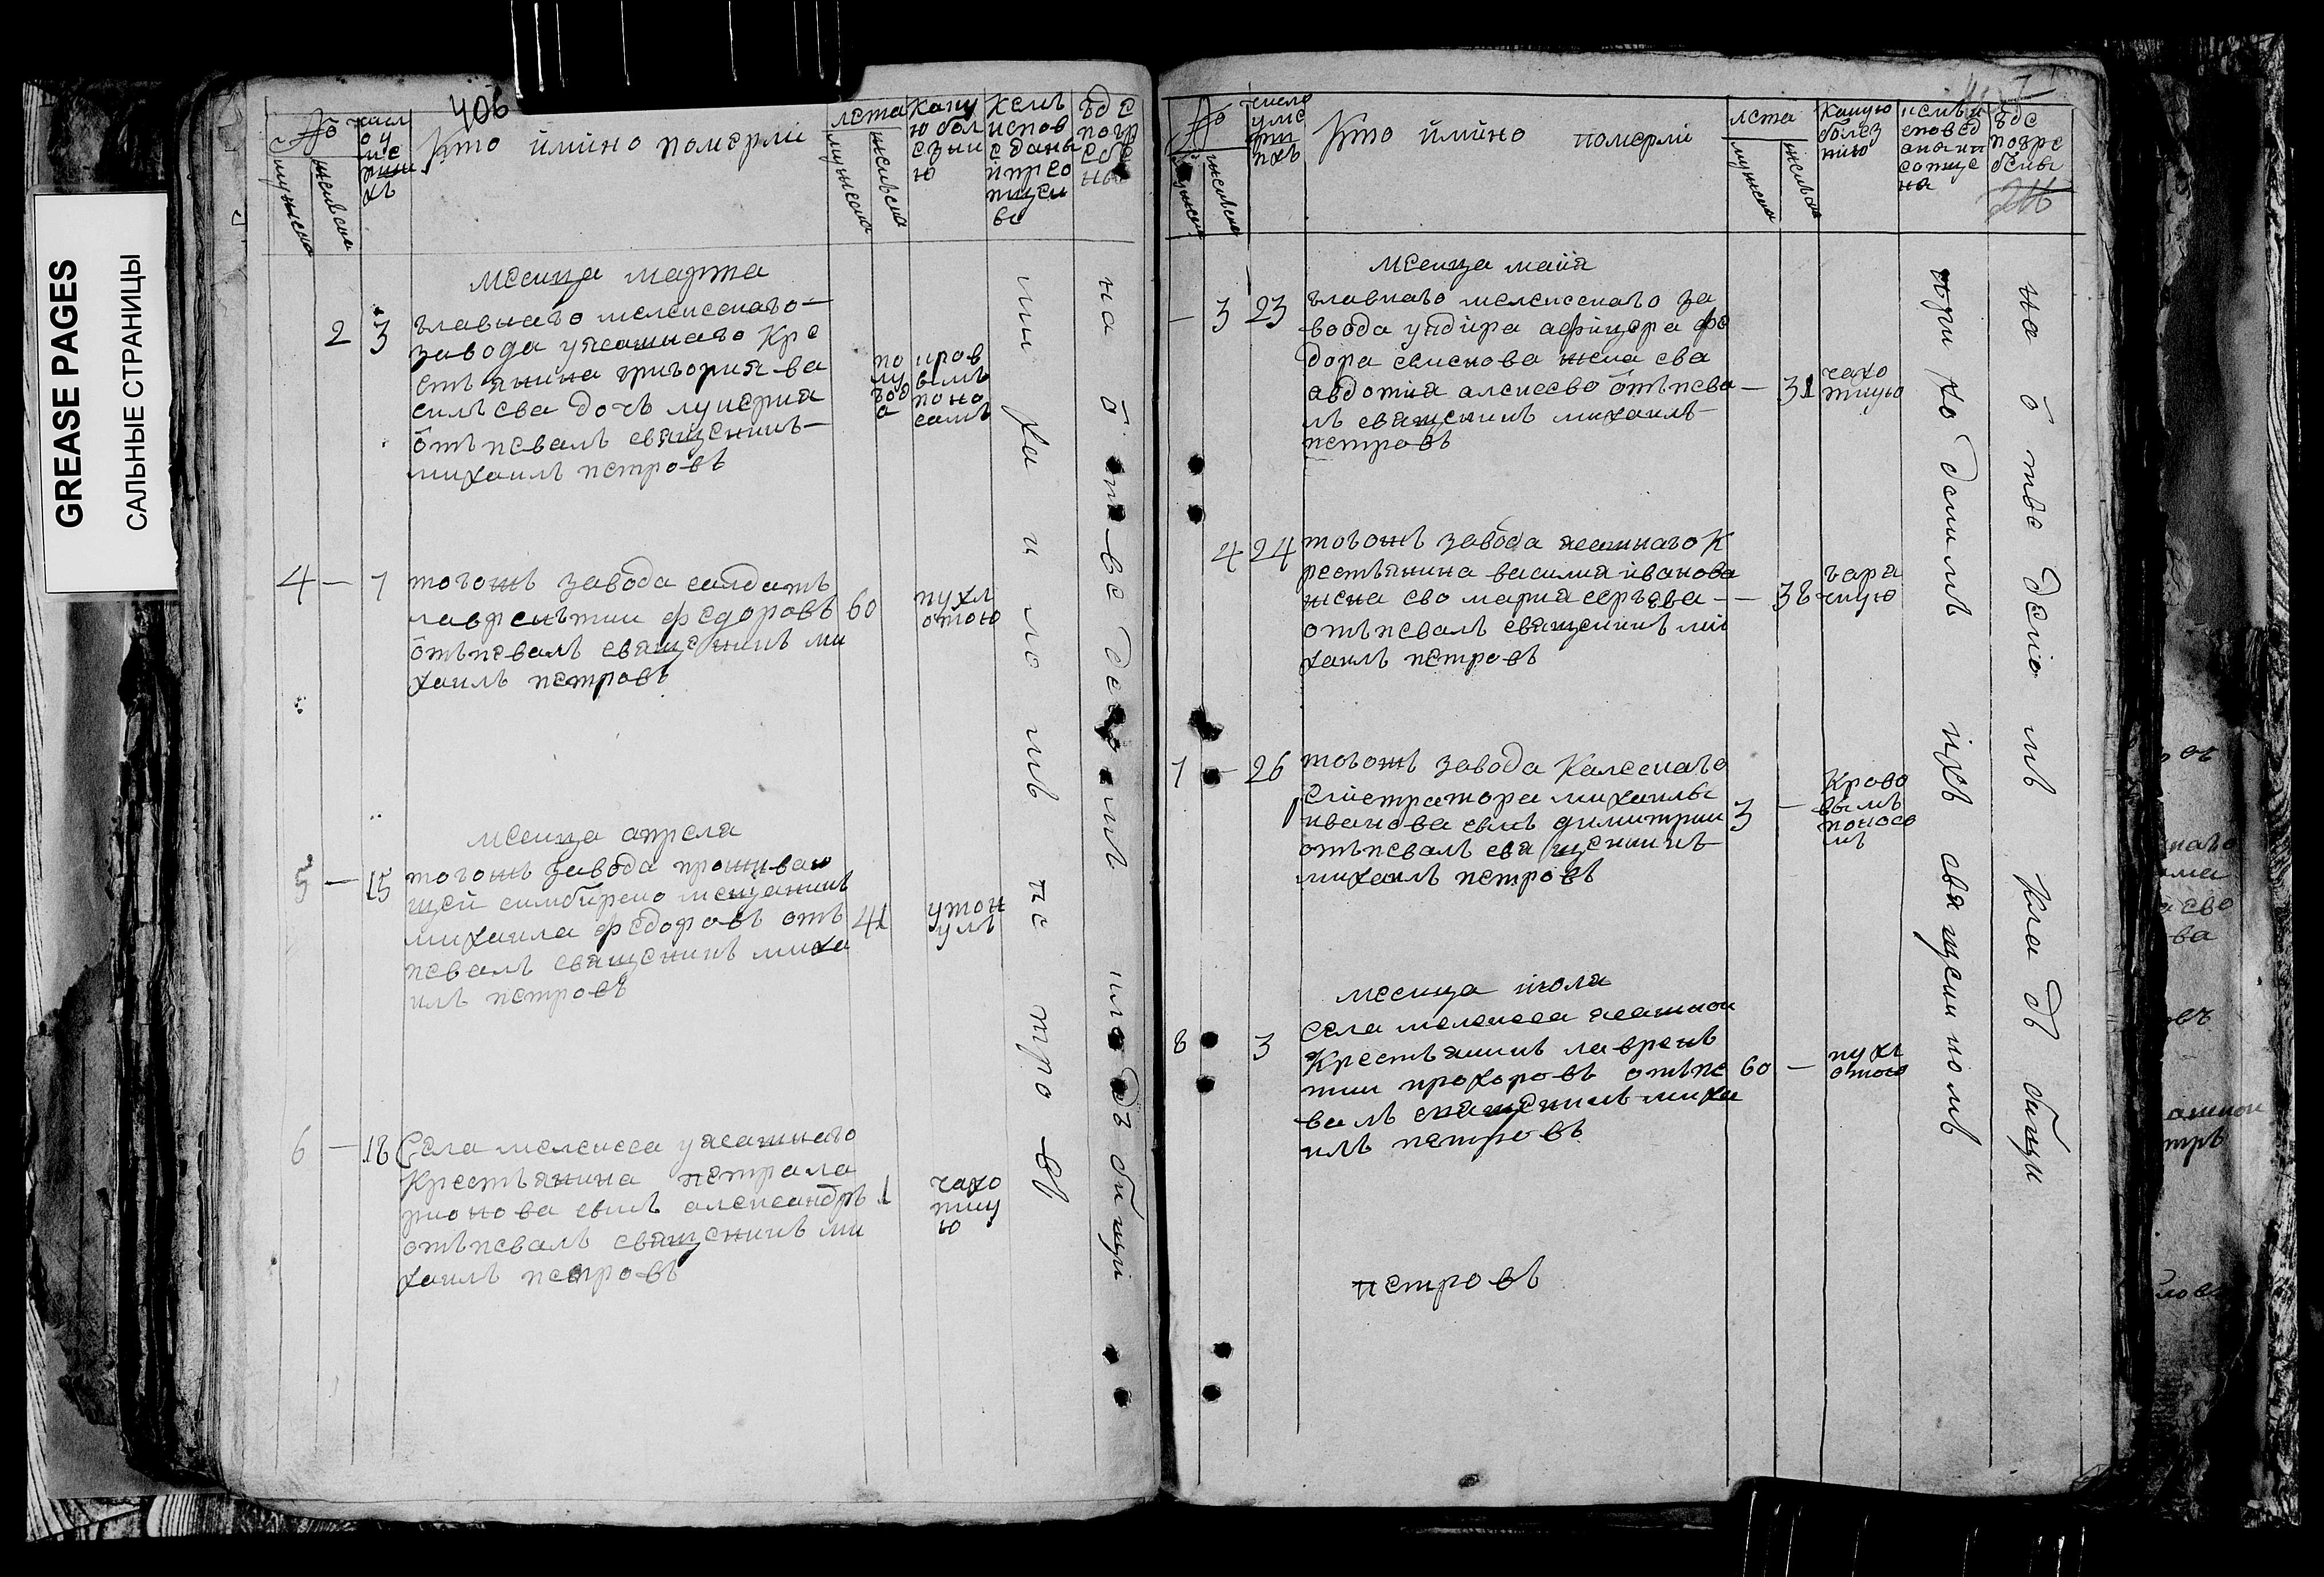 GREASE PAGES
САЛЬНЫЕ СТРАНИЦЫ
406
№
числ
о у
ме
рши
хъ
мужеска
женска
Кто имино померли
лета
мужеска
женска
Каку
ю бол
езни
ю
Кемъ
испов
еданы
и прео
пщен
ве
где
погр
ебе
ны
месица марта
2 3
главнаго мелекесскаго
завода уясашнаго Кре
стьянина григория ва
сильева дочъ лукерия
отъпевалъ священникъ
михаилъ петровъ
по
лу
год
а
кров
вымъ
поно
сомъ
4 — 7
тогожъ завода салдатъ
лаврентии федоровъ 60
отъпевалъ священникъ ми
хаилъ петровъ
пухл
отою
месица апреля
5 — 15
тогожъ завода проживаю
щей симбирско мещанинъ
михаила федоровъ отъ 41
певалъ священникъ миха
илъ петровъ
утон
улъ
6 — 18
Села мелекеса уясашнаго
Крестьянина петра ла
рионова сынъ александръ 1
отъпевалъ священникъ ми
хаилъ петровъ
чахо
тку
ю
ми ха и ло мъ пе тро въ
на отъведеномъ кладъбищи
№
мужеска
женска
число
умер
ши
хъ
Кто имино померли
лета
мужеска
женска
Какую
болез
нию
кемъ и
сповед
аны и п
еопще
на
где
погре
бены
месица маия
— 3 23
главнаго мелекесскаго за
вода ундира афицера фе
дора семенова жена ева
авдотия алексева отъпева — 31
лъ священикъ михаилъ
петровъ
чахо
ткую
4 24
тогожъ завода ясашнаго К
рестьянина василия иванова
жена ево мария сергъева — 38
отъпевалъ священикъ ми
хаилъ петровъ
гара
чкую
7 — 26
тогожъ завода Калеснаго
регистратора михаилы
иванова сынъ димитрии 3 —
отъпевалъ священникъ
михаилъ петровъ
Крово
вымъ
поносо
мъ
месица июля
8 3
села мелекеса ясашнои
Крестьянинъ лаврень
тии прохоровъ отъпе 60 —
валъ священникъ миха
илъ петровъ
пухл
отою
при хо димъ ихъ священномъ
на отведеномъ кладбищи
петровъ